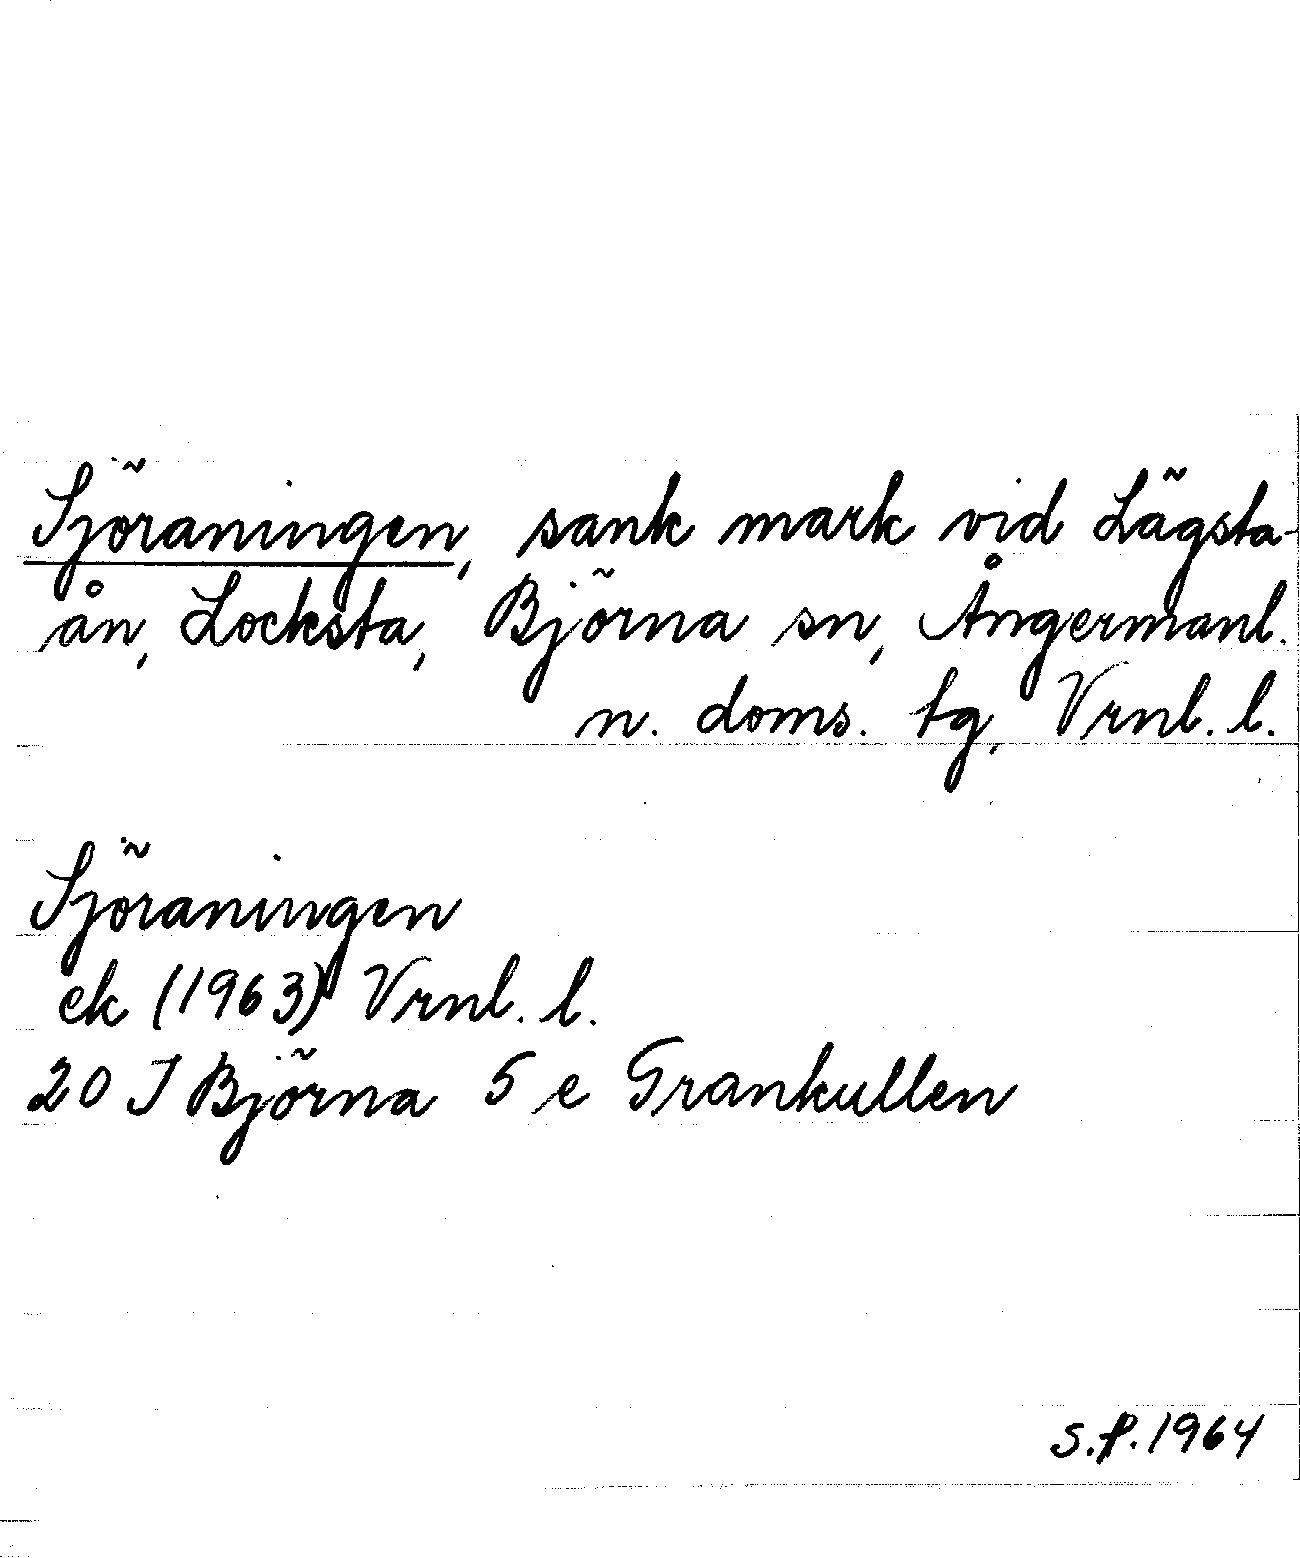 Sjöraningen, sank mark vid Lägsta-
ån, Locksta, Björna sn, Ångermanl.
n. doms. tg, Vrnl. l.
Sjöraningen
ek (1963) Vrnl. l.
20 I Björna 5 e Grankullen
S.P. 1964